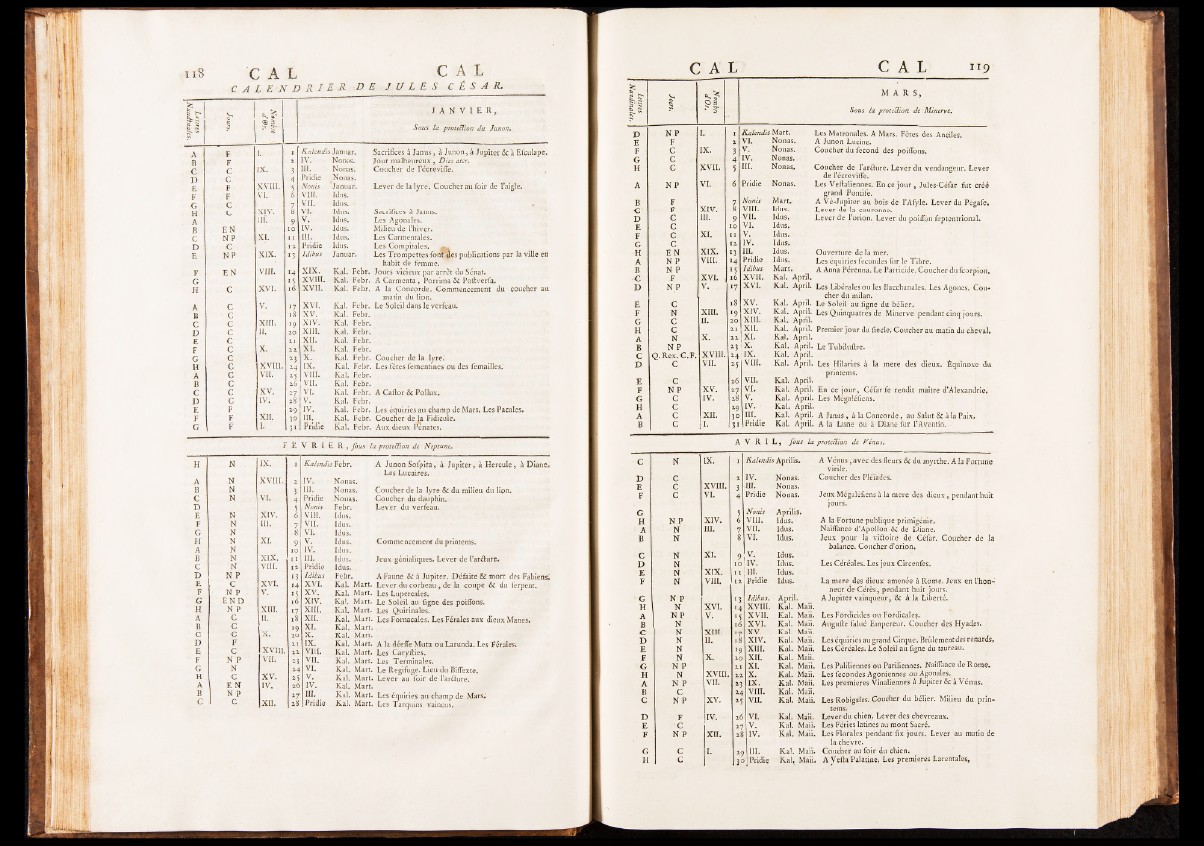 118 CAL CAL
CALENDRIER DE JULES CÉSAR.
Lettres Nundinales. Jours. Nombre d'Or. JANVIER,
Sous la protection de Junon.
A F I. 1 Kalendis Januar. Sacrifices à Janus, à Junon, à Jupiter & à Esculape.
B F 2 IV. Nonas. Jour malheureux, Dies ater.
C C IX. 3 III. Nonas. Coucher de l'écrevisse.
D C 4 Pridie Nonas.
E F XVIII. 5 Nonis Januar. Lever de la lyre. Coucher au soir de l'aigle.
F F VI. 6 VIII. Idus.
G C 7 VII. Idus.
H C XIV. 8 VI. Idus. Sacrifices à Janus.
A III. 9 V. Idus. Les Agonales.
B EN 10 IV. Idus. Milieu de l'hiver.
C NP XI. 11 III. Idus. Les Carmentales.
D C 12 Pridie Idus. Les Compitales.
E NP XIX. 13 Idibus Januar. Les Trompettes font des publications par la ville en
habit de femme.
F EN VIII. 14 XIX. Kal. Febr. Jours vicieux par arrêt du Sénat.
G 15 XVIII. Kal. Febr. A Carmenta, Porrima & Postversa.
H C XVI. 16 XVII. Kal. Febr. A la Concorde. Commencement du coucher au
matin du lion.
A C V. 17 XVI. Kal. Febr. Le Soleil dans le verseau.
B C 18 XV. Kal. Febr.
C C XIII. 19 XIV. Kal. Febr.
D C II. 20 XIII. Kal. Febr.
E C 21 XII. Kal. Febr.
F C X. 22 XI. Kal. Febr.
G C 23 X. Kal. Febr. Coucher de la lyre.
H C XVIII. 24 IX. Kal. Febr. Les fêtes sementines ou des semailles.
A C VII. 25 VIII. Kal. Febr.
B C 26 VII. Kal. Febr.
C C XV. 27 VI. Kal. Febr. A Castor & Pollux.
D C IV. 28 V. Kal. Febr.
E F 29 IV. Kal. Febr. Les équiries au champ de Mars. Les Pacales.
F F XII. 30 III. Kal. Febr. Coucher de la Fidicule.
G F I. 31 Pridie Kal. Febr. Aux dieux Pénates.
FEVRIER, sous la protection de Neptune.
H N IX. 1 Kalendis Febr. A Junon Sospita, à Jupiter, à Hercule, à Diane.
Les Lucaires.
A N XVIII. 2 IV. Nonas.
B N 3 III. Nonas. Coucher de la lyre & du milieu du lion.
C N VI. 4 Pridie Nonas. Coucher du dauphin.
D 5 Nonis Febr. Lever du verseau.
E N XIV. 6 VIII. Idus.
F N III. 7 VII. Idus.
G N 8 VI. Idus.
H N XI. 9 V. Idus. Commencement du printems.
A N 10 IV. Idus.
B N XIX. 11 III. Idus. Jeux génialiques. Lever de l'arcture.
C N VIII. 12 Pridie Idus.
D NP 13 Idibus Febr. A Faune & à Jupiter. Défaite & mort des Fabiens.
E C XVI. 14 XVI. Kal. Mart. Lever du corbeau, de la coupe & du serpent.
F NP V. 15 XV. Kal. Mart. Les Lupercales.
G END 16 XIV. Kal. Mart. Le Soleil au signe des poissons.
H NP XIII. 17 XIII. Kal. Mart. Les Quirinales.
A C II. 18 XII. Kal. Mart. Les Fornacales. Les Férales aux dieux Manes.
B C 19 XI. Kal. Mart.
C C X. 20 X. Kal. Mart.
D F 21 IX. Kal. Mart. A la déesse Muta ou Larunda. Les Férales.
E C XVIII. 22 VIII. Kal. Mart. Les Carysties.
F NP VII. 23 VII. Kal. Mart. Les Terminales.
G N 24 VI. Kal. Mart. Le Regifuge. Lieu du Bissexte.
H C XV. 25 V. Kal. Mart. Lever au soir de l'arcture.
A EN IV. 26 IV. Kal. Mart.
B NP 27 III. Kal. Mart. Les équiries au champ de Mars.
C C XII. 28 Pridie Kal. Mart. Les Tarquins vaincus.
CAL CAL 119
Lettres Nundinales. Jours. Nombre d'Or. MARS,
Sous la protection de Minerve.
D NP I. 1 Kalendis Mart. Les Matronales. A Mars. Fêtes des Anciles.
E F 2 VI. Nonas. A Junon Lucine.
F C IX. 3 V. Nonas. Coucher du second des poissons.
G C 4 IV. Nonas.
H C XVII. 5 III. Nonas. Coucher de l'arcture. Lever du vendangeur. Lever
de l'écrevisse.
A NP VI. 6 Pridie Nonas. Les Vestaliennes. En ce jour, Jules-César fut créé
grand Pontife.
B F 7 Nonis Mart. A Vé-Jupiter au bois de l'Asyle. Lever du Pégase.
C F XIV. 8 VIII. Idus. Lever de la couronne.
D C III. 9 VII. Idus. Lever de l'orion. Lever du poisson septentrional.
E C 10 VI. Idus.
F C XI. 11 V. Idus.
G C 12 IV. Idus.
H EN XIX. 13 III. Idus. Ouverture de la mer.
A NP VIII. 14 Pridie Idus. Les équiries secondes sur le Tibre.
B NP 15 Idibus Mart. A Anna Pérenna. Le Parricide. Coucher du scorpion.
C F XVI. 16 XVII. Kal. April.
D NP V. 17 XVI. Kal. April. Les Libérales ou les Bacchanales. Les Agones. Cou-
cher du milan.
E C 18 XV. Kal. April. Le Soleil au signe du bélier.
F N XIII. 19 XIV. Kal. April. Les Quinquatres de Minerve pendant cinq jours.
G C II. 20 XIII. Kal. April.
H C 21 XII. Kal. April. Premier jour du siecle. Coucher au matin du cheval.
A N X. 22 XI. Kal. April.
B NP 23 X. Kal. April. Le Tubilustre.
C Q. Rex. C. F. XVIII. 24 IX. Kal. April.
D C VII. 25 VIII. Kal. April. Les Hilaries à la mere des dieux. Équinoxe du
printems.
E C 26 VII. Kal. April.
F NP XV. 27 VI. Kal. April. En ce jour, César se rendit maître d'Alexandrie.
G C IV. 28 V. Kal. April. Les Mégalésiens.
H C 29 IV. Kal. April.
A C XII. 30 III. Kal. April. A Janus, à la Concorde, au Salut & à la Paix.
B C I. 31 Pridie Kal. April. A la Lune ou à Diane sur l'Aventin.
AVRIL, sous la protection de Vénus.
C N IX. 1 Kalendis Aprilis. A Vénus, avec des fleurs & du myrthe. A la Fortune
virile.
D C 2 IV. Nonas. Coucher des Pléiades.
E C XVIII. 3 III. Nonas.
F C VI. 4 Pridie Nonas. Jeux Mégalésiens à la mere des dieux, pendant huit
jours.
G 5 Nonis Aprilis.
H NP XIV. 6 VIII. Idus. A la Fortune publique primigénie.
A N III. 7 VII. Idus. Naissance d'Apollon & de Diane.
B N 8 VI. Idus. Jeux pour la victoire de César. Coucher de la
balance. Coucher d'orion.
C N XI. 9 V. Idus.
D N 10 IV. Idus. Les Céréales. Les jeux Circenses.
E N XIX. 11 III. Idus.
F N VIII. 12 Pridie Idus. La mere des dieux amenée à Rome. Jeux en l'hon-
neur de Cérès, pendant huit jours.
G NP 13 Idibus. April. A Jupiter vainqueur, & à la Liberté.
H N XVI. 14 XVIII. Kal. Maii.
A NP V. 15 XVII. Kal. Maii. Les Fordicides ou Fordicales.
B N 16 XVI. Kal. Maii. Auguste salué Empereur. Coucher des Hyades.
C N XIII 17 XV. Kal. Maii.
D N II. 18 XIV. Kal. Maii. Les équiries au grand Cirque. Brûlement des renards.
E N 19 XIII. Kal. Maii. Les Céréales. Le Soleil au signe du taureau.
F N X. 20 XII. Kal. Maii.
G NP 21 XI. Kal. Maii. Les Paliliennes ou Pariliennes. Naissance de Rome.
H N XVIII. 22 X. Kal. Maii. Les secondes Agoniennes ou Agonales.
A NP VII. 23 IX. Kal. Maii. Les premieres Vinaliennes à Jupiter & à Vénus.
B C 24 VIII. Kal. Maii.
C NP XV. 25 VII. Kal. Maii. Les Robigales. Coucher du bélier. Milieu du prin-
tems.
D F IV. 26 VI. Kal. Maii. Lever du chien. Lever des chevreaux.
E C 27 V. Kal. Maii. Les Féries latines au mont Sacré.
F NP XII. 28 IV. Kal. Maii. Les Florales pendant six jours. Lever au matin de
la chevre.
G C I. 29 III. Kal. Maii. Coucher au soir du chien.
H C 30 Pridie Kal. Maii. A Vesta Palatine. Les premieres Larentales.